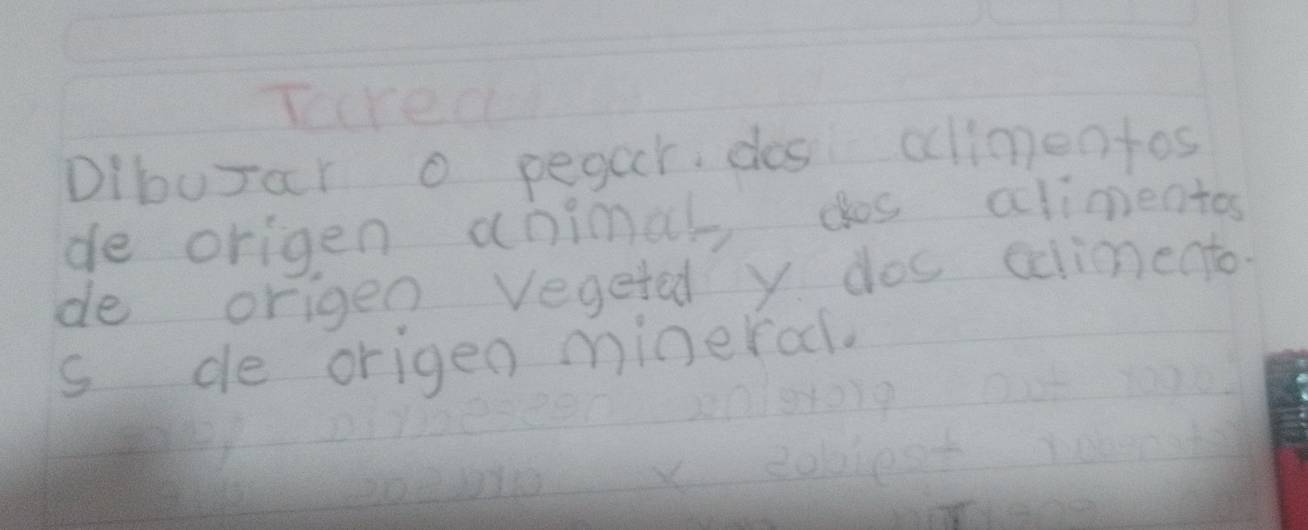 Tarea
DibuJar o pegar. dos alimentos
de origen animal, dos alimentos
de origen vegetal y dos alimento-
s de origen mineral.